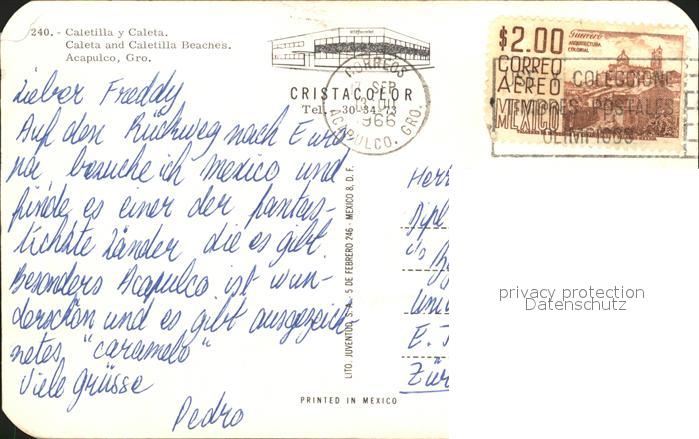 240. - Caletilla y Caleta.
Caleta and Caletilla Beaches.
Acapulco, Gro.
CRISTACOLOR
Tel. 30-34-73
Lieber Freddy
Auf den Rückweg nach Euro-
pa besuche ich Mexico und
finde es einer der fantas-
tichste Länder die es gibt.
Besonders Acapulco ist wun-
derschön und es gibt ausgezeich
netes "caramelo"
Viele Grüsse
Pedro
CORREOS
17 SEP
1966
ACAPULCO, GRO.
$2.00
Guerrero
ARQUITECTURA
COLONIAL
CORREO
AEREO
MEXICO
COLECCIONE
POSTALES
OLIMPICOS
LITO. JUVENTUD, S. A. 5 DE FEBRERO 746 - MEXICO 8, D. F.
Herr
Dipl
Univ
E. T
Zür
privacy protection
Datenschutz
PRINTED IN MEXICO